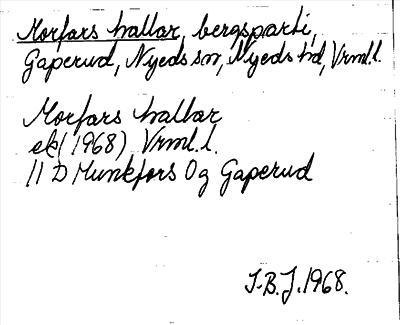 Morfars hallar, bergsparti,
Gaperud, Nyeds sn, Nyeds hd, Vrml.l.
Morfars hallar
ek(1968) Vrml.l.
11 D Munkfors Og Gaperud
I.B.J. 1968.